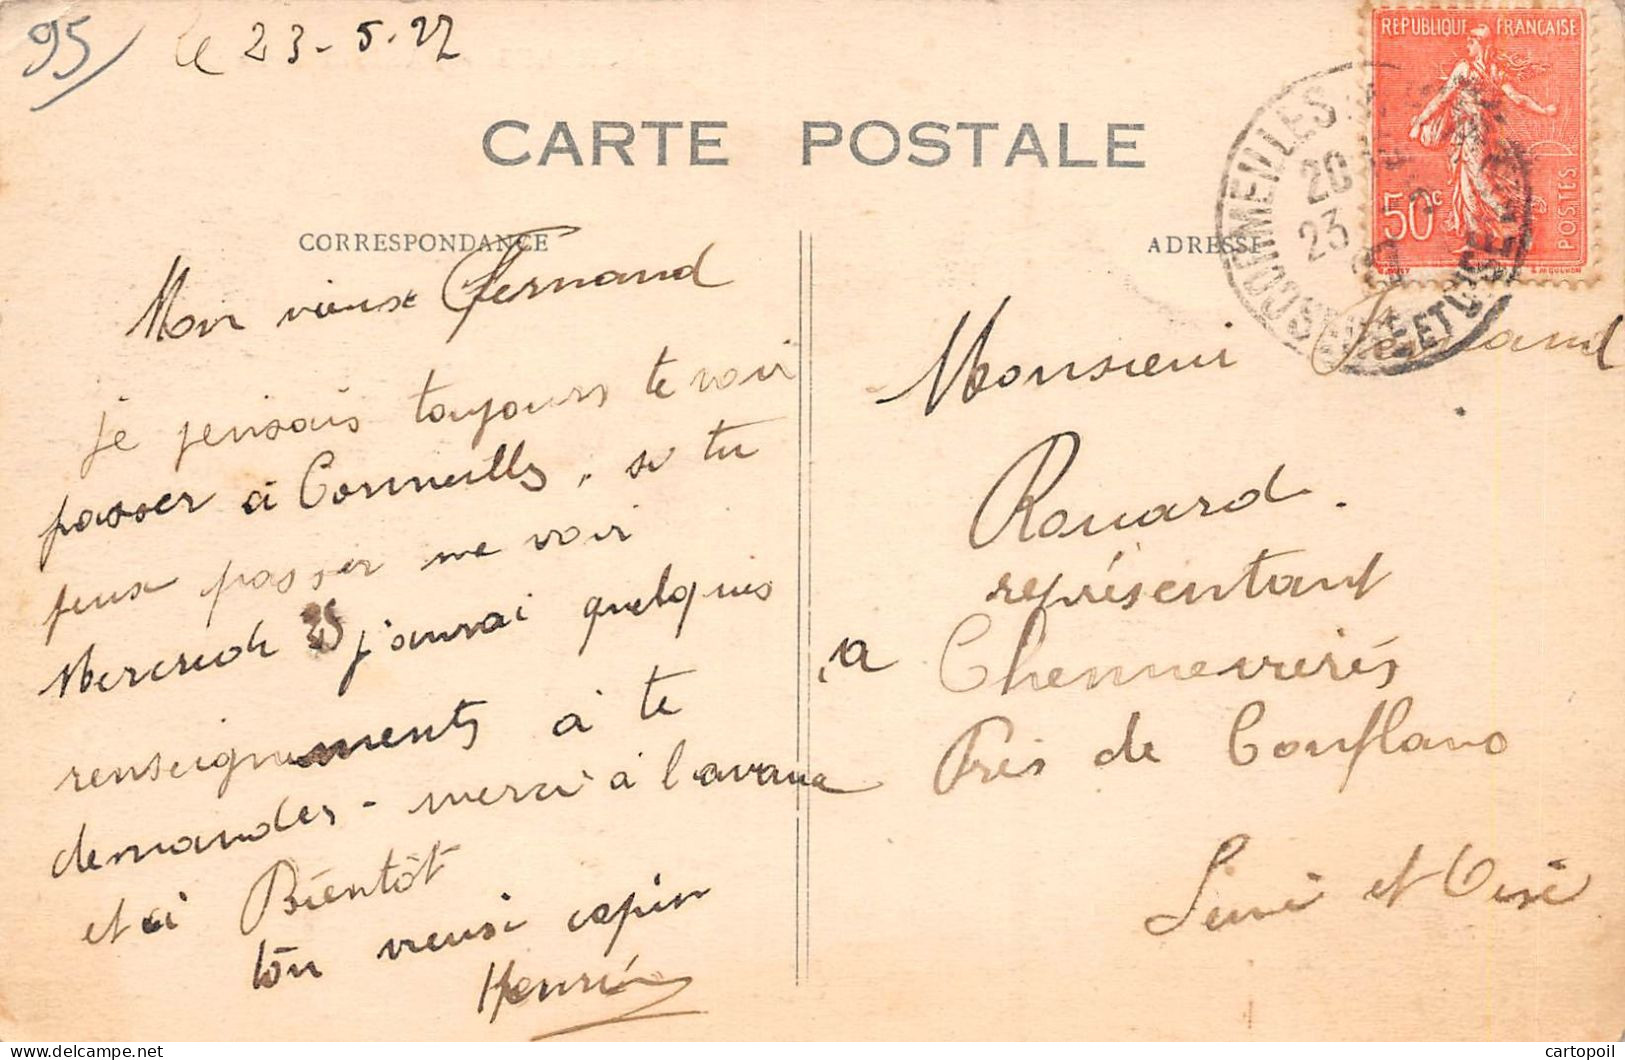 95
le 23-5-27
CARTE POSTALE
REPUBLIQUE FRANÇAISE
50c
POSTES
20
23
SEINE ET OISE
CORRESPONDANCE
ADRESSE
Mon vieux Fernand
je pensais toujours te voir
passer à Cormeilles, si tu
peux passer me voir
Mercredi 25 j'aurai quelques
renseignements à te
demander - merci à l'avance
et à Bientôt
ton vieux copin
Henri
Monsieur Fernand
Rouard.
représentant
a Chennevières
Près de Conflans
Seine et Oise
cartopoil